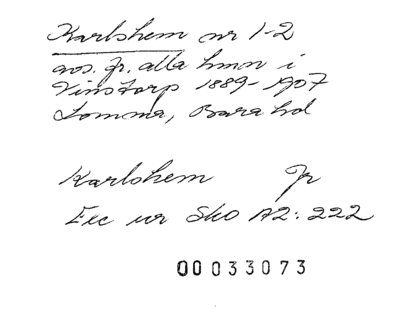 Karlshem nr 1-2
avs. fr. alla hmn i
Vinstorp 1889-1907
Lomma, Bara hd
Karlshem Jr
Exc ur Sko A2:222
00033073